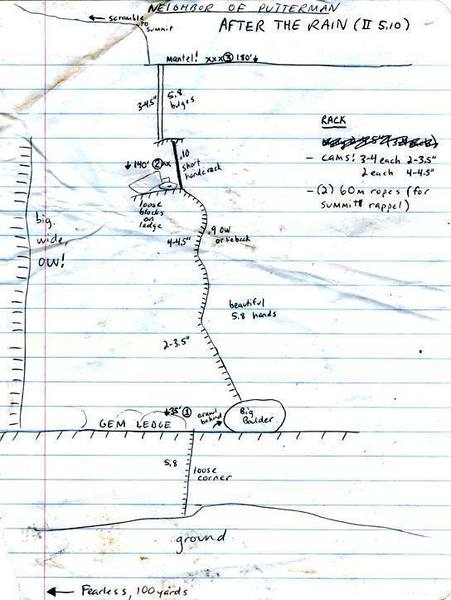 NEIGHBOR OF PUTTERMAN
AFTER THE RAIN (II 5.10)
← scramble
to
summit
Mantel! xxx ③ 180'↓
3-4.5"
5.8
bulges
RACK
- CAMS: 3-4 each 2-3.5"
2 each 4-4.5"
- (2) 60m ropes (for
summit rappel)
.10
short
handcrack
↓140' ② xx
loose
blocks
on
ledge
big,
wide,
OW!
.9 OW
or lieback
4-4.5"
beautiful
5.8 hands
2-3.5"
↓35' ①
crawl
behind
Big
Boulder
GEM LEDGE
5.8
loose
corner
ground
← Fearless, 100 yards